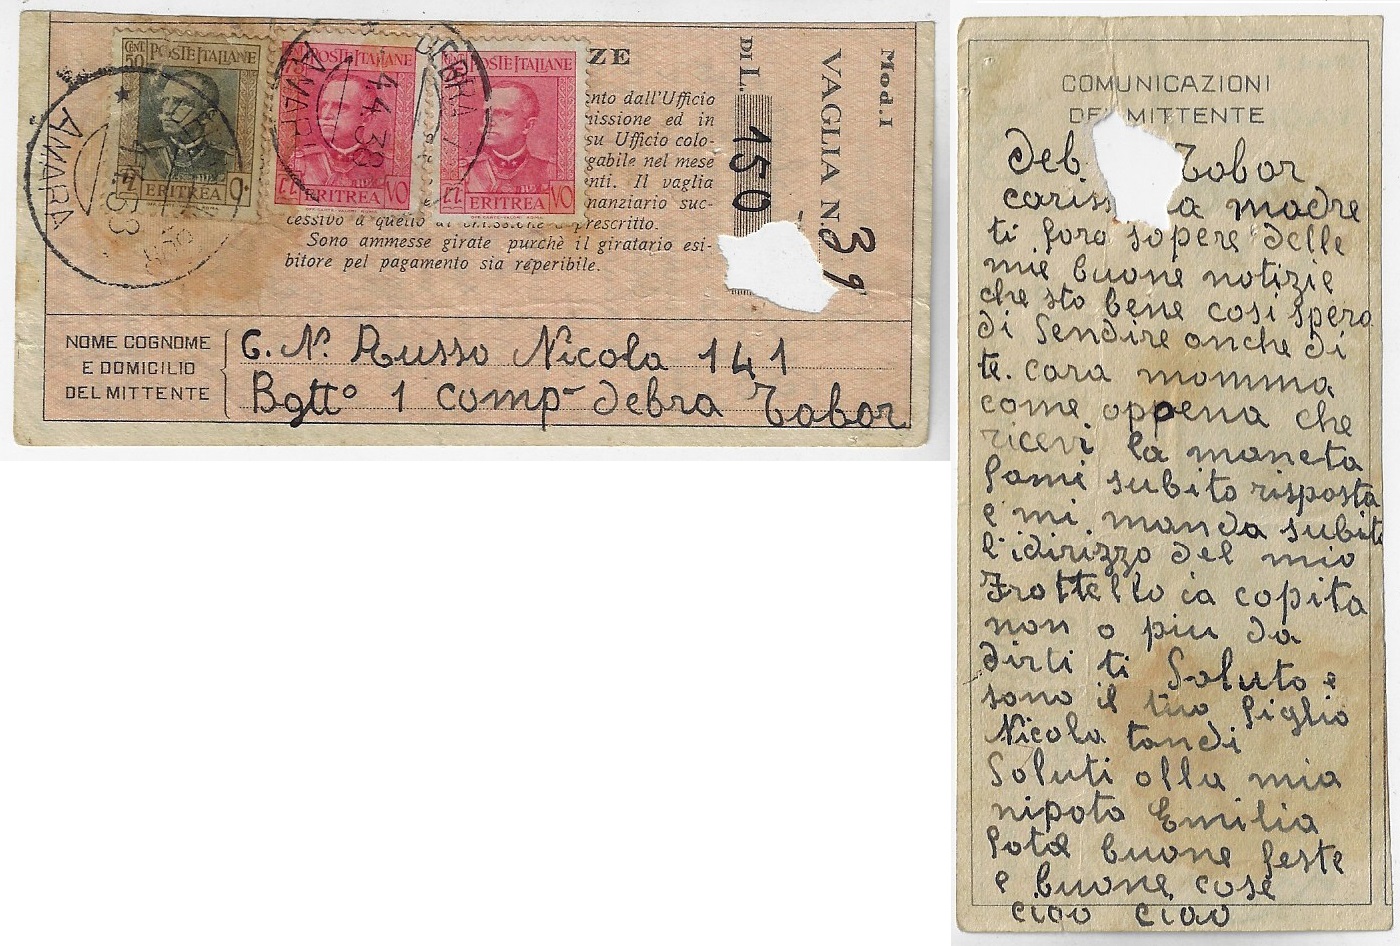 CENT 50
POSTE ITALIANE
POSTE ITALIANE
POSTE ITALIANE
ERITREA
ERITREA
ERITREA
AMARA
4.4.39
DEBRA
AMARA
ZE
nto dall'Ufficio
issione ed in
su Ufficio colo-
gabile nel mese
nti. Il vaglia
nanziario suc-
cessivo a quello prescritto.
Sono ammesse girate purchè il giratario esi-
bitore pel pagamento sia reperibile.
DI L. 150
VAGLIA N. 39
Mod. I
NOME COGNOME
E DOMICILIO
DEL MITTENTE
C. N. Russo Nicola 141
Bgtto 1 Comp- debra Tabor
COMUNICAZIONI
DEL MITTENTE
Deb Tabor
cariss a madre
ti fora sapere delle
mie buone notizie
che sto bene cosi spero
di sendire anche di
te. cara momma
come appena che
ricevi la maneta
fami subito risposta
e mi manda subito
l'idirizzo del mio
Frattello ia copita
non o piu da
dirti ti Saluto e
sono il tuo figlio
Nicola tandi
Saluti alla mia
nipota Emilia
fata buone feste
e buone cose
ciao ciao